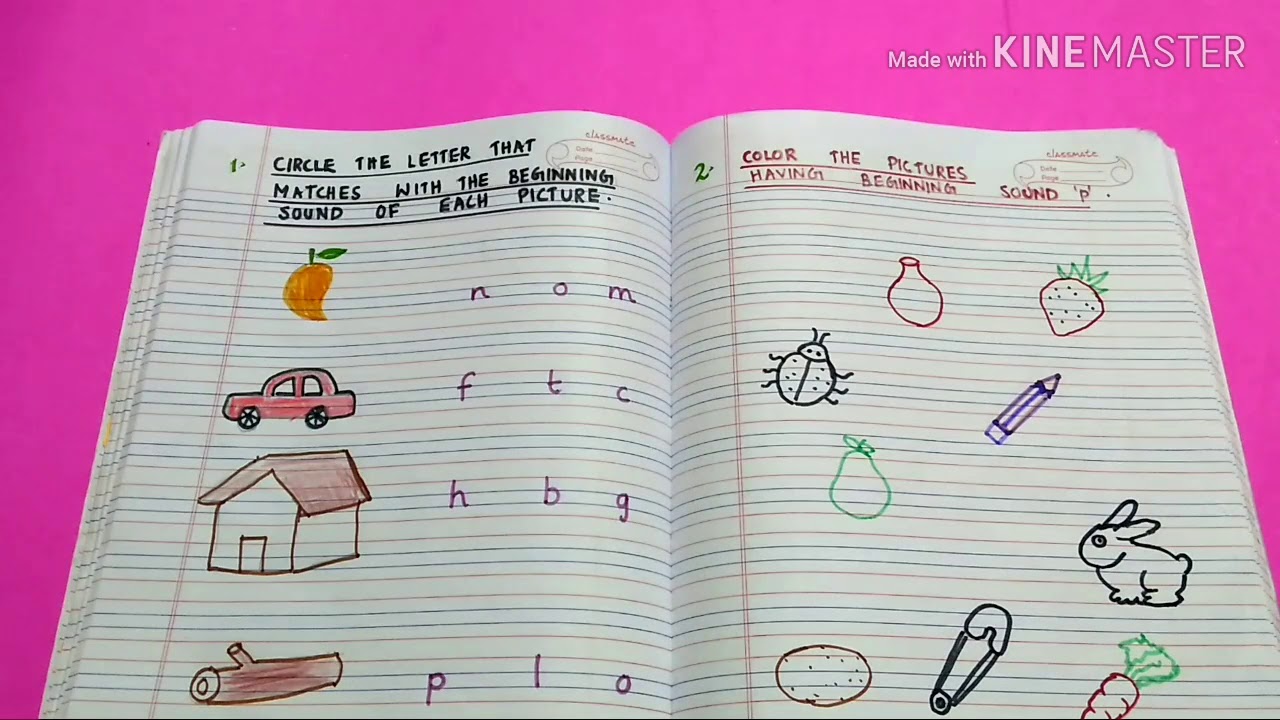 Made with KINEMASTER
1. CIRCLE THE LETTER THAT
MATCHES WITH THE BEGINNING
SOUND OF EACH PICTURE.
classmate
Date
Page
n o m
f t c
h b g
p l o
2. COLOR THE PICTURES
HAVING BEGINNING SOUND 'p'.
classmate
Date
Page